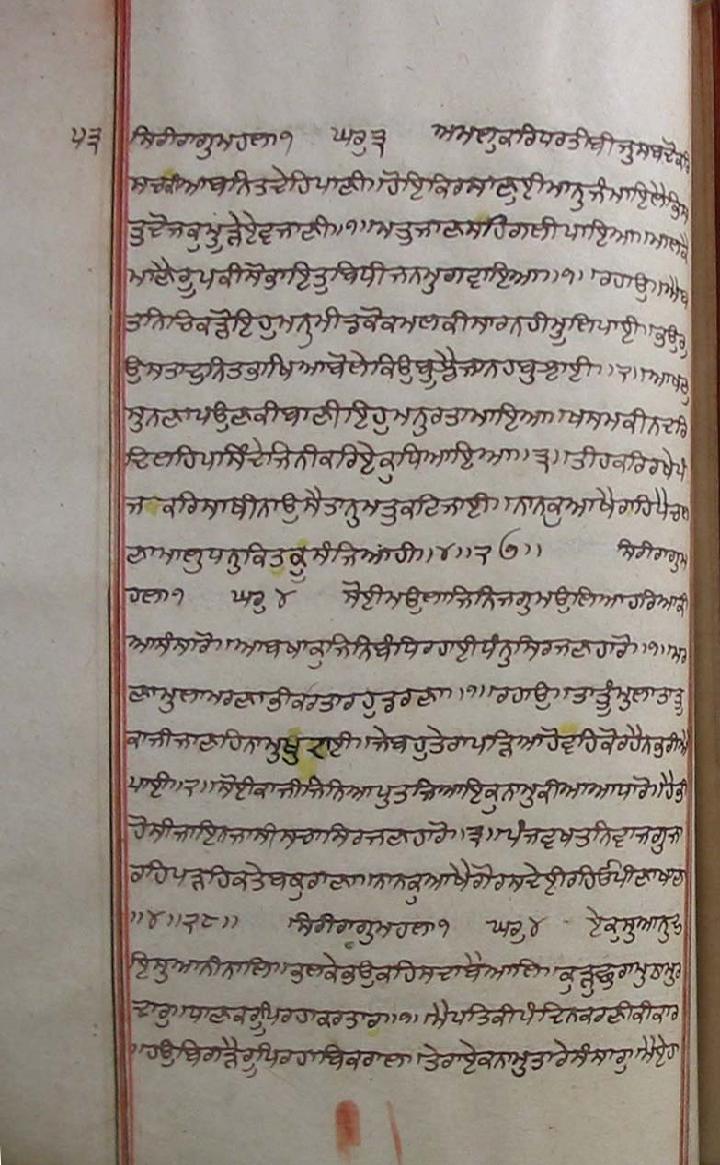 ੫੩ ਸਿਰੀਰਾਗੁਮਹਲਾ੧ ਘਰੁ੩ ਅਮਲੁਕਰਿਧਰਤੀਬੀਜੁਸਬਦੋਕਰਿ
ਸਚਕੀਆਬਨਿਤਦੇਹਿਪਾਣੀ॥ਹੋਇਕਿਰਸਾਣੁਈਮਾਨੁਜੰਮਾਇਲੈਭਿਸ
ਤੁਦੋਜਕੁਮੂੜੇਏਵਜਾਣੀ॥੧॥ਮਤੁਜਾਣਸਹਿਗਲੀਪਾਇਆ॥ਮਾਲਕੈ
ਮਾਣੈਰੂਪਕੀਸੋਭਾਇਤੁਬਿਧੀਜਨਮੁਗਵਾਇਆ॥੧॥ਰਹਾਉ॥ਐਬ
ਤਨਿਚਿਕੜੋਇਹੁਮਨੁਮੀਡਕੋਕਮਲਕੀਸਾਰਨਹੀਮੂਲਿਪਾਈ॥ਭਉਰੁ
ਉਸਤਾਦੁਨਿਤਭਾਖਿਆਬੋਲੇਕਿਉਬੁਝੈਜਾਨਹਬੁਝਾਈ॥੨॥ਆਖਣੁ
ਸੁਨਣਾਪਉਣਕੀਬਾਣੀਇਹੁਮਨੁਰਤਾਮਾਇਆ॥ਖਸਮਕੀਨਦਰਿ
ਦਿਲਹਿਪਸਿੰਦੇਜਿਨੀਕਰਿਏਕੁਧਿਆਇਆ॥੩॥ਤੀਹਕਰਿਰਖੇਪੰ
ਜਕਰਿਸਾਥੀਨਾਉਸੈਤਾਨੁਮਤੁਕਟਿਜਾਈ॥ਨਾਨਕੁਆਖੈਰਾਹਿਪੈਚਲ
ਣਾਮਾਲੁਧਨੁਕਿਤਕੂਸੰਜਿਆਹੀ॥੪॥੨੭॥ ਸਿਰੀਰਾਗੁਮ
ਹਲਾ੧ ਘਰੁ੪ ਸੋਈਮਉਲਾਜਿਨਿਜਗੁਮਉਲਿਆਹਰਿਆਕੀ
ਆਸੰਸਾਰੋ॥ਆਬਖਾਕੁਜਿਨਿਬੰਧਿਰਹਾਈਧੰਨੁਸਿਰਜਣਹਾਰੋ॥੧॥ਮਰ
ਣਾਮੁਲਾਮਰਣਾਭੀਕਰਤਾਰਹੁਡਰਣਾ॥੧॥ਰਹਾਉ॥ਤਾਤੂੰਮੁਲਾਤਾਤੂ
ਕਾਜੀਜਾਣਹਿਨਾਮੁਖੁਦਾਈ॥ਜੇਬਹੁਤੇਰਾਪੜਿਆਹੋਵਹਿਕੋਰਹੈਨਭਰੀਐ
ਪਾਈ॥੨॥ਸੋਈਕਾਜੀਜਿਨਿਆਪੁਤਜਿਆਇਕੁਨਾਮੁਕੀਆਆਧਾਰੋ॥ਹੈਭੀ
ਹੋਸੀਜਾਇਨਜਾਸੀਸਚਾਸਿਰਜਣਹਾਰੋ॥੩॥ਪੰਜਵਖਤਨਿਵਾਜਗੁਜਾ
ਰਹਿਪੜਹਿਕਤੇਬਕੁਰਾਣਾ॥ਨਾਨਕੁਆਖੈਗੋਰਸਦੇਈਰਹਿਓਪੀਣਾਖਾਣਾ
॥੪॥੨੮॥ ਸਿਰੀਰਾਗੁਮਹਲਾ੧ ਘਰੁ੪ ਏਕੁਸੁਆਨੁਦੁ
ਇਸੁਆਨੀਨਾਲਿ॥ਭਲਕੇਭਉਕਹਿਸਦਾਬੈਆਲਿ॥ਕੂੜੁਛੁਰਾਮੁਠਾਮੁਰ
ਦਾਰੁ॥ਧਾਣਕਰੂਪਿਰਹਾਕਰਤਾਰ॥੧॥ਮੈਪਤਿਕੀਪੰਦਿਨਕਰਣੀਕੀਕਾਰ
॥ਹਉਬਿਗੜੈਰੂਪਿਰਹਾਬਿਕਰਾਲ॥ਤੇਰਾਏਕਨਾਮੁਤਾਰੇਸੰਸਾਰੁ॥ਮੈਏਹਾ